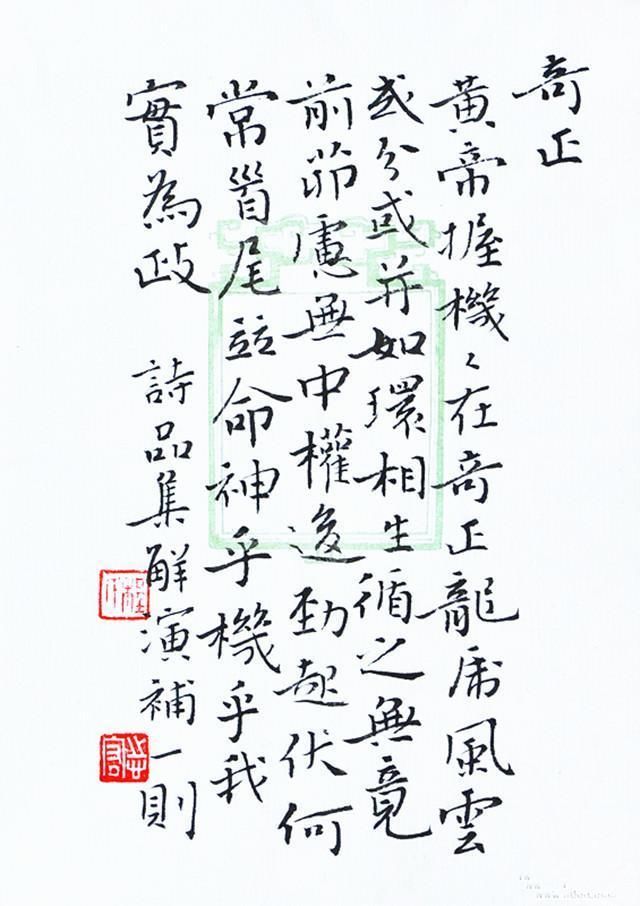 竒正
黃帝握機々在竒正龍虎風雲
或分或并如環相生循之無竟
前茆慮無中權後勁起伏何
常首尾竝命神乎機乎我
實為政 詩品集解演補一則